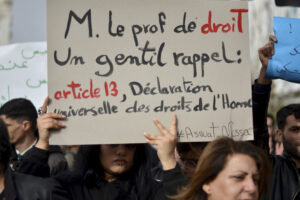 M. le prof de droiT
Un gentil rappel:
article 13, Déclaration
universelle des droits de l'Homme
#Aswat Nissa